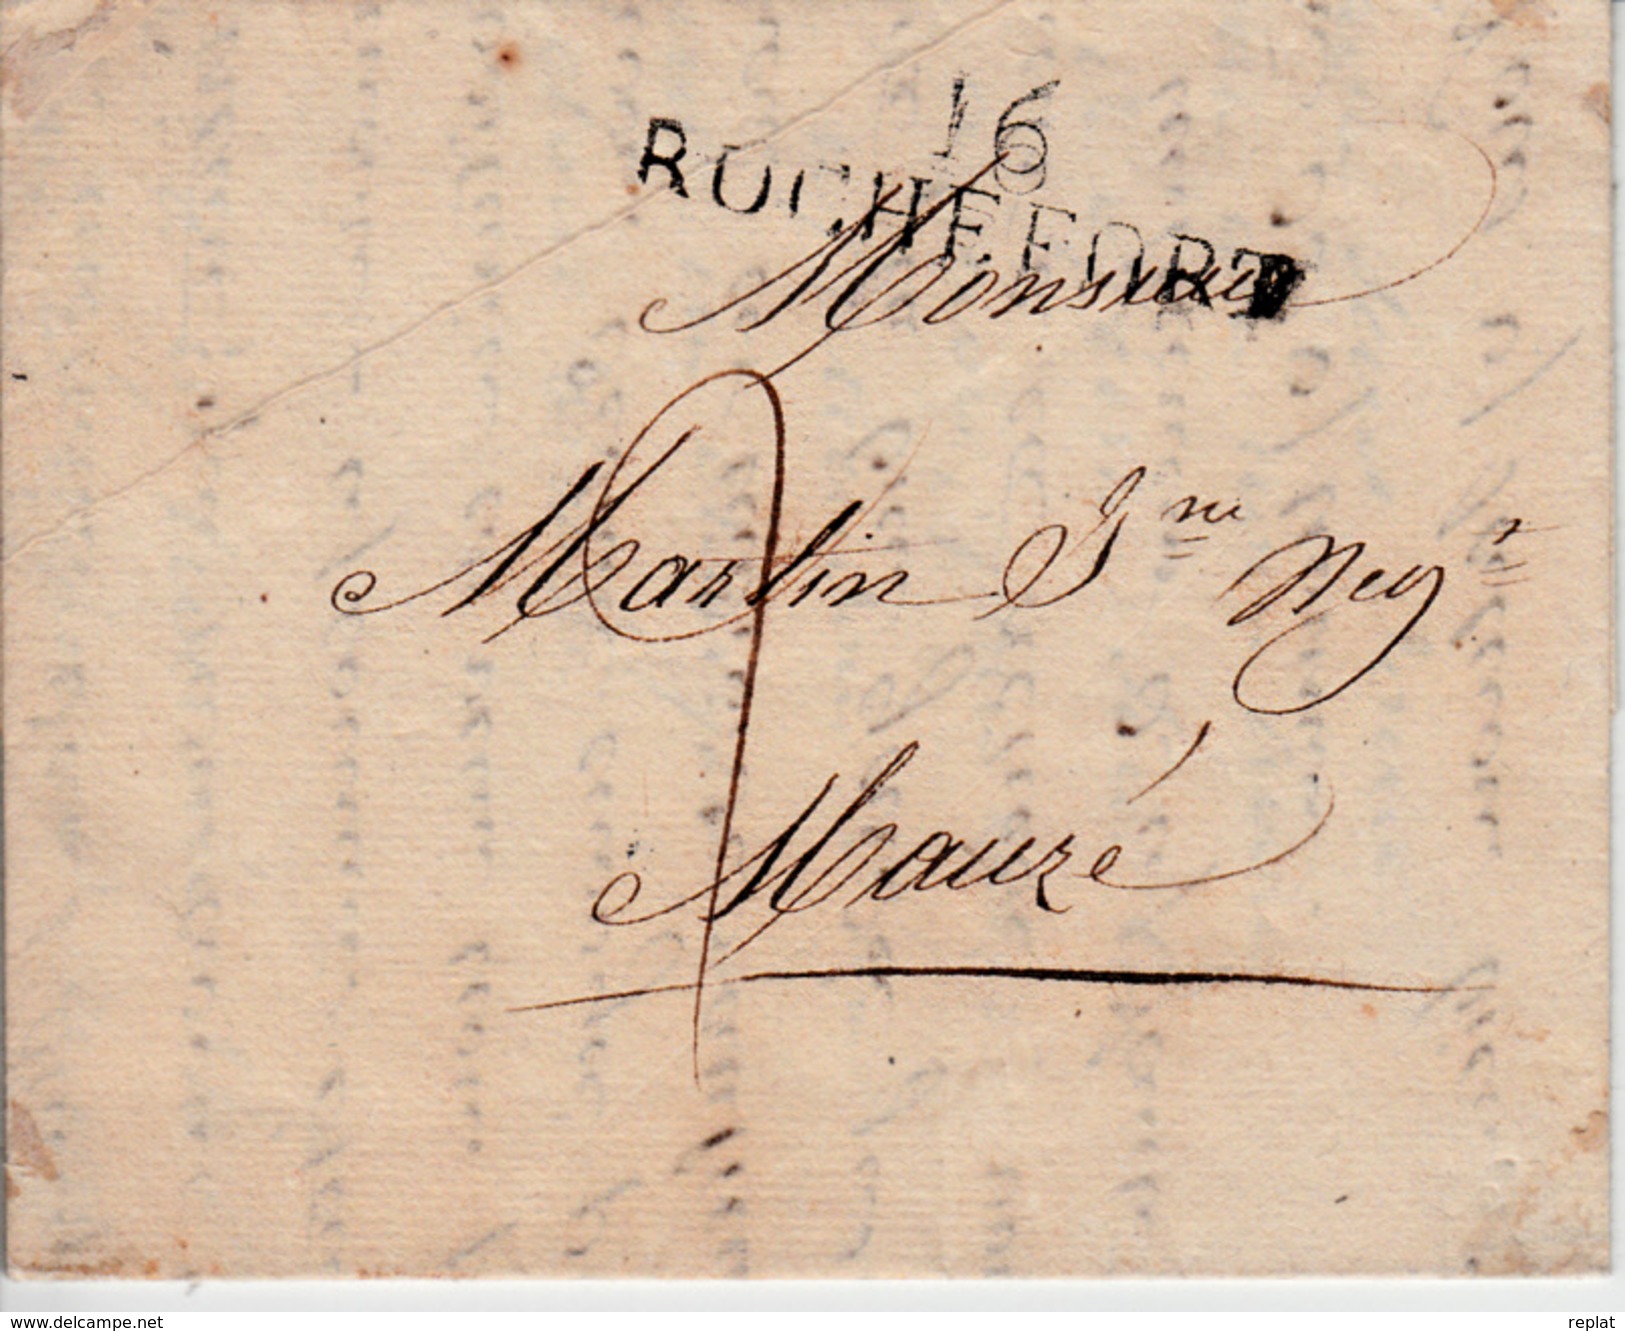 16
ROCHEFORT
Monsieur
Martin Jne Negt
Mauzé
www.delcampe.net
replat